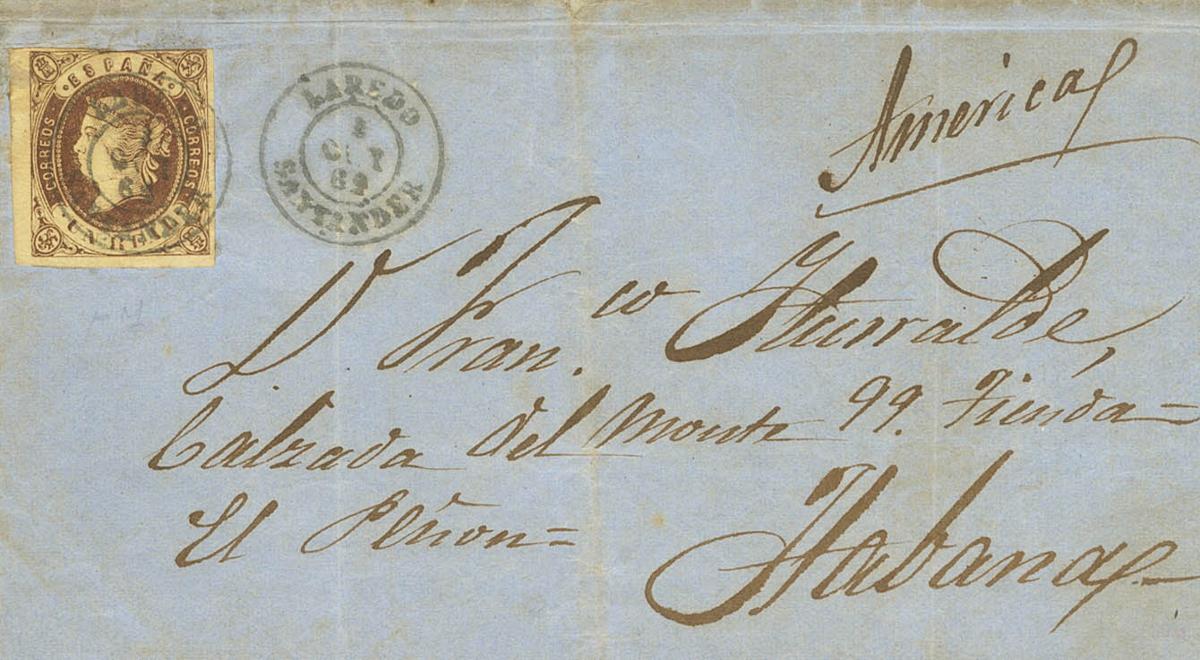 ESPAÑA
CORREOS
CORREOS
UN REAL
LAREDO
OCT
62
SANTANDER
America
D. Fran.co Iturralde,
Calzada del Monte 99. Tienda=
El Peñon=
Habana